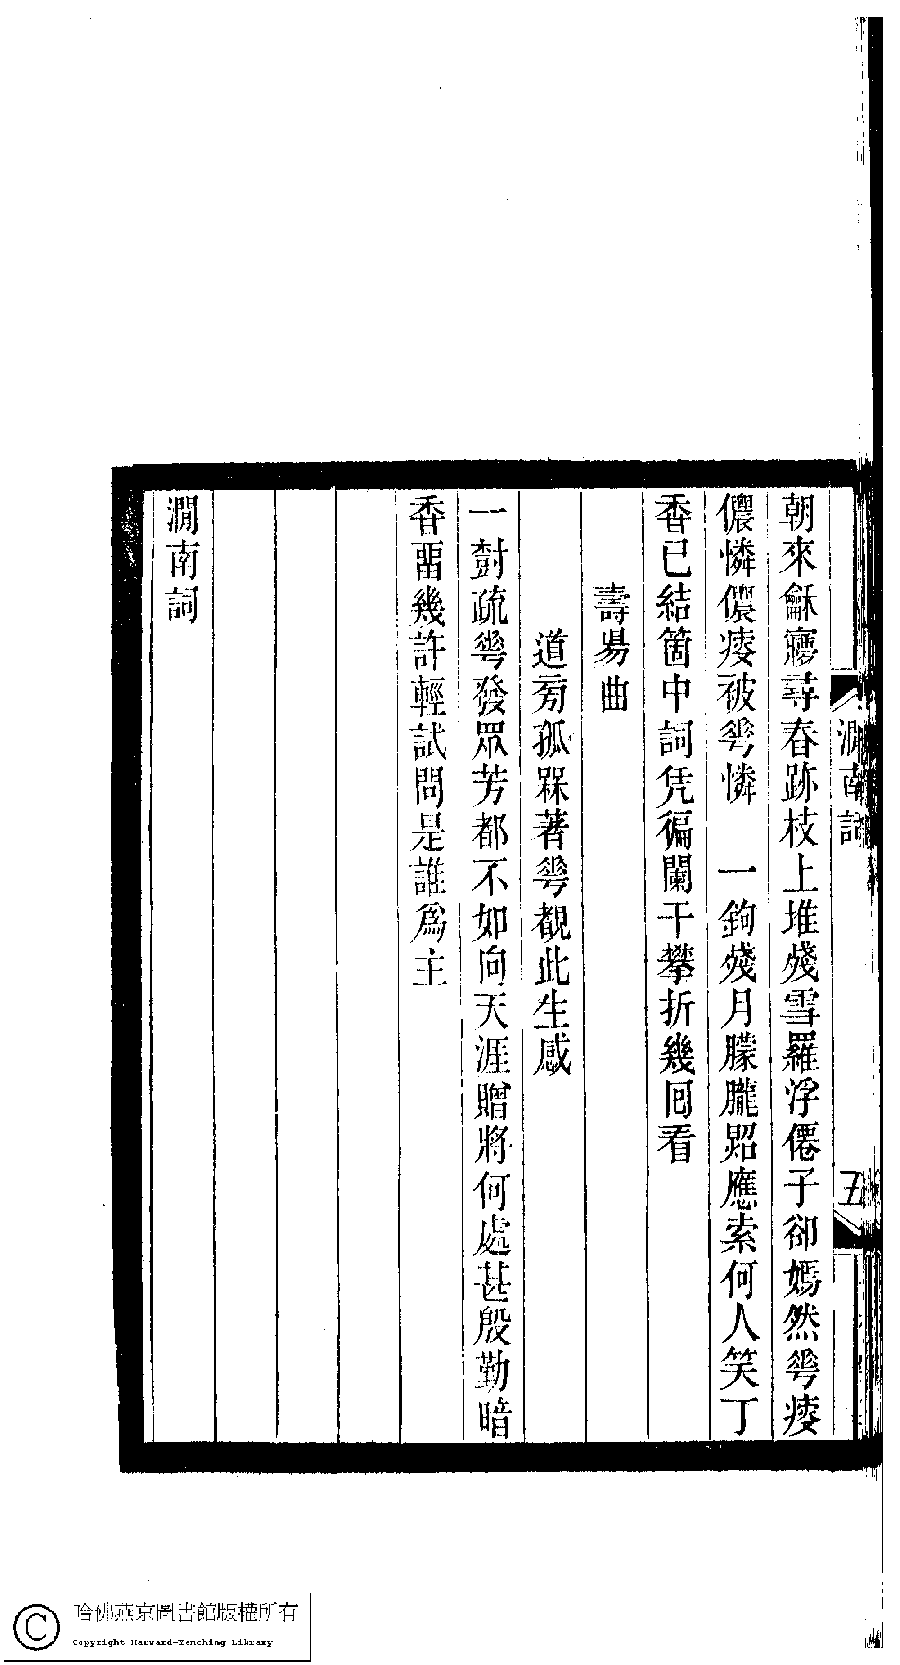 朝來龢㝱尋春跡枝上堆殘雪羅浮僊子卻嫣然䓵痩
儂憐儂痩被䓵憐　一鉤殘月朦朧炤應索何人笑丁
香已結箇中詞凭徧闌干攀折幾囘看
壽昜曲
道㫄孤槑著䓵覩此生感
一尌疏䓵發眾芳都不如向天涯贈將何處甚殷勤暗
香畱幾許輕試問是誰爲主
澗南詞
澗南詞
五
哈佛燕京圖書館版權所有
Copyright Harvard-Yenching Library